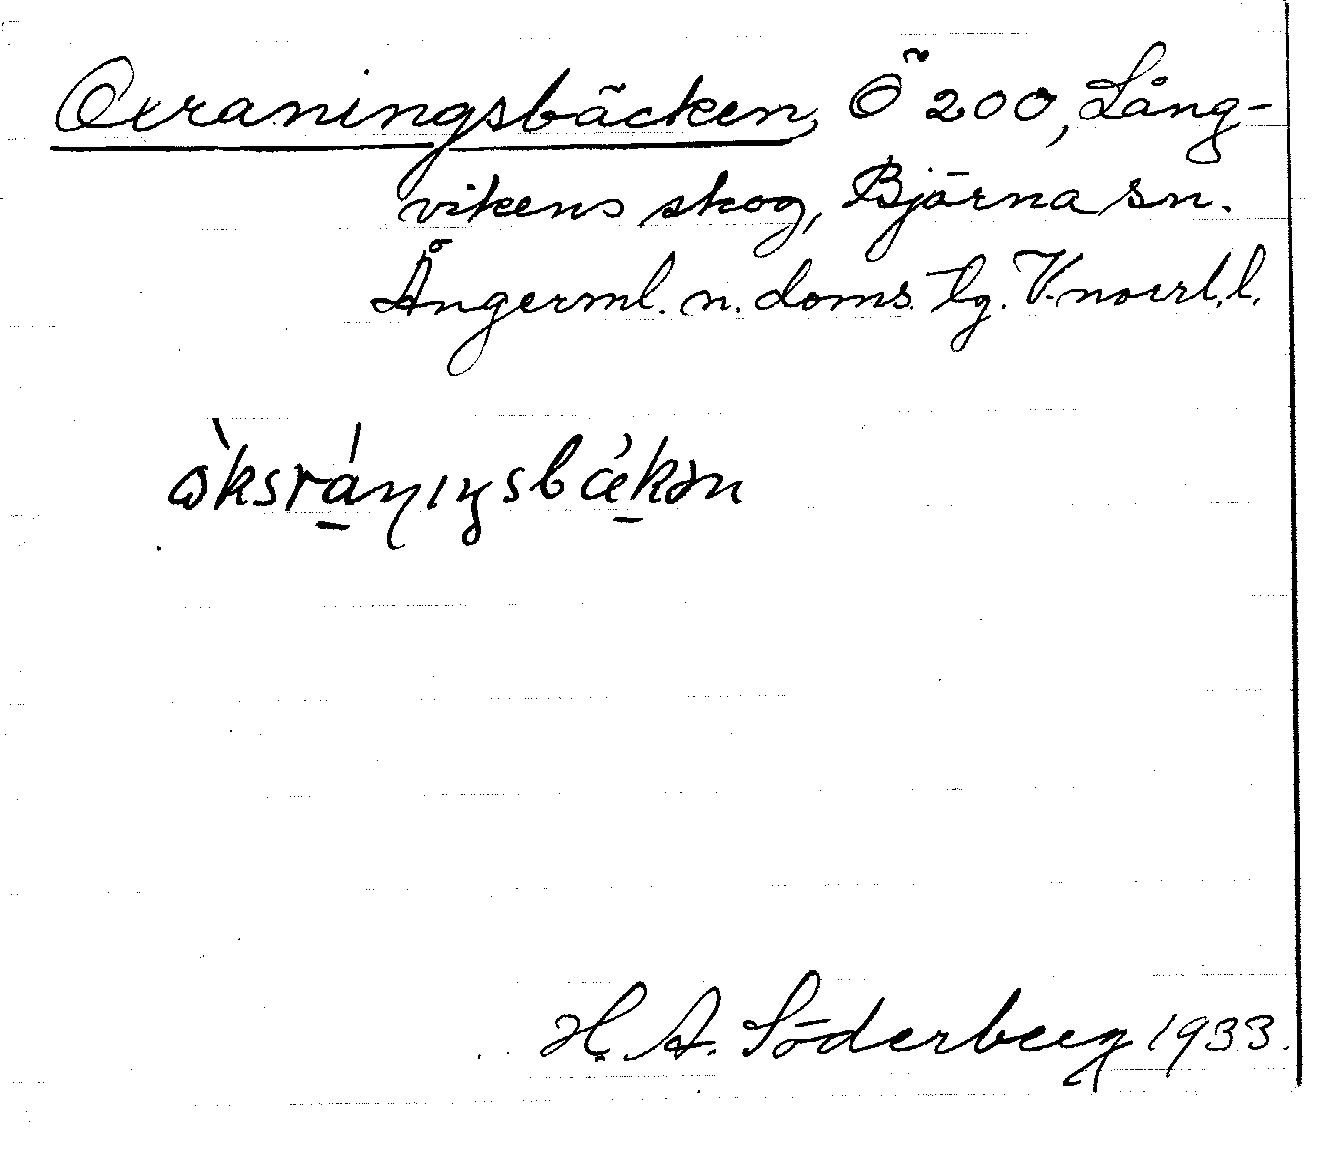 Oxraningsbäcken, Ö 200, Lång-
vikens skog, Björna sn.
Ångerml. n. doms. tg. V.norrl.l.
òksrá̱nıŋsbǽ̱kən
H. A. Söderberg 1933.